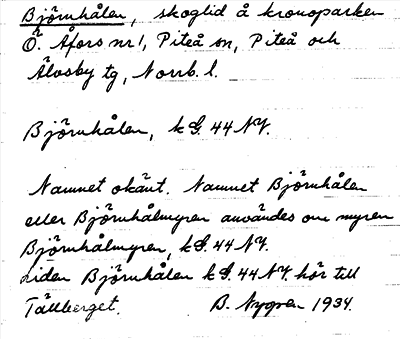 Björnhålen, skoglid å kronoparken
Ö. Åfors nr 1, Piteå sn, Piteå och
Älvsby tg, Norrb. l.
Björnhålen, k G. 44 NY.
Namnet okänt. Namnet Björnhålen
eller Björnhålmyren användes om myren
Björnhålmyren, k G. 44 NY.
Liden Björnhålen k G. 44 NY. hör till
Tällberget. B. Nygren 1934.